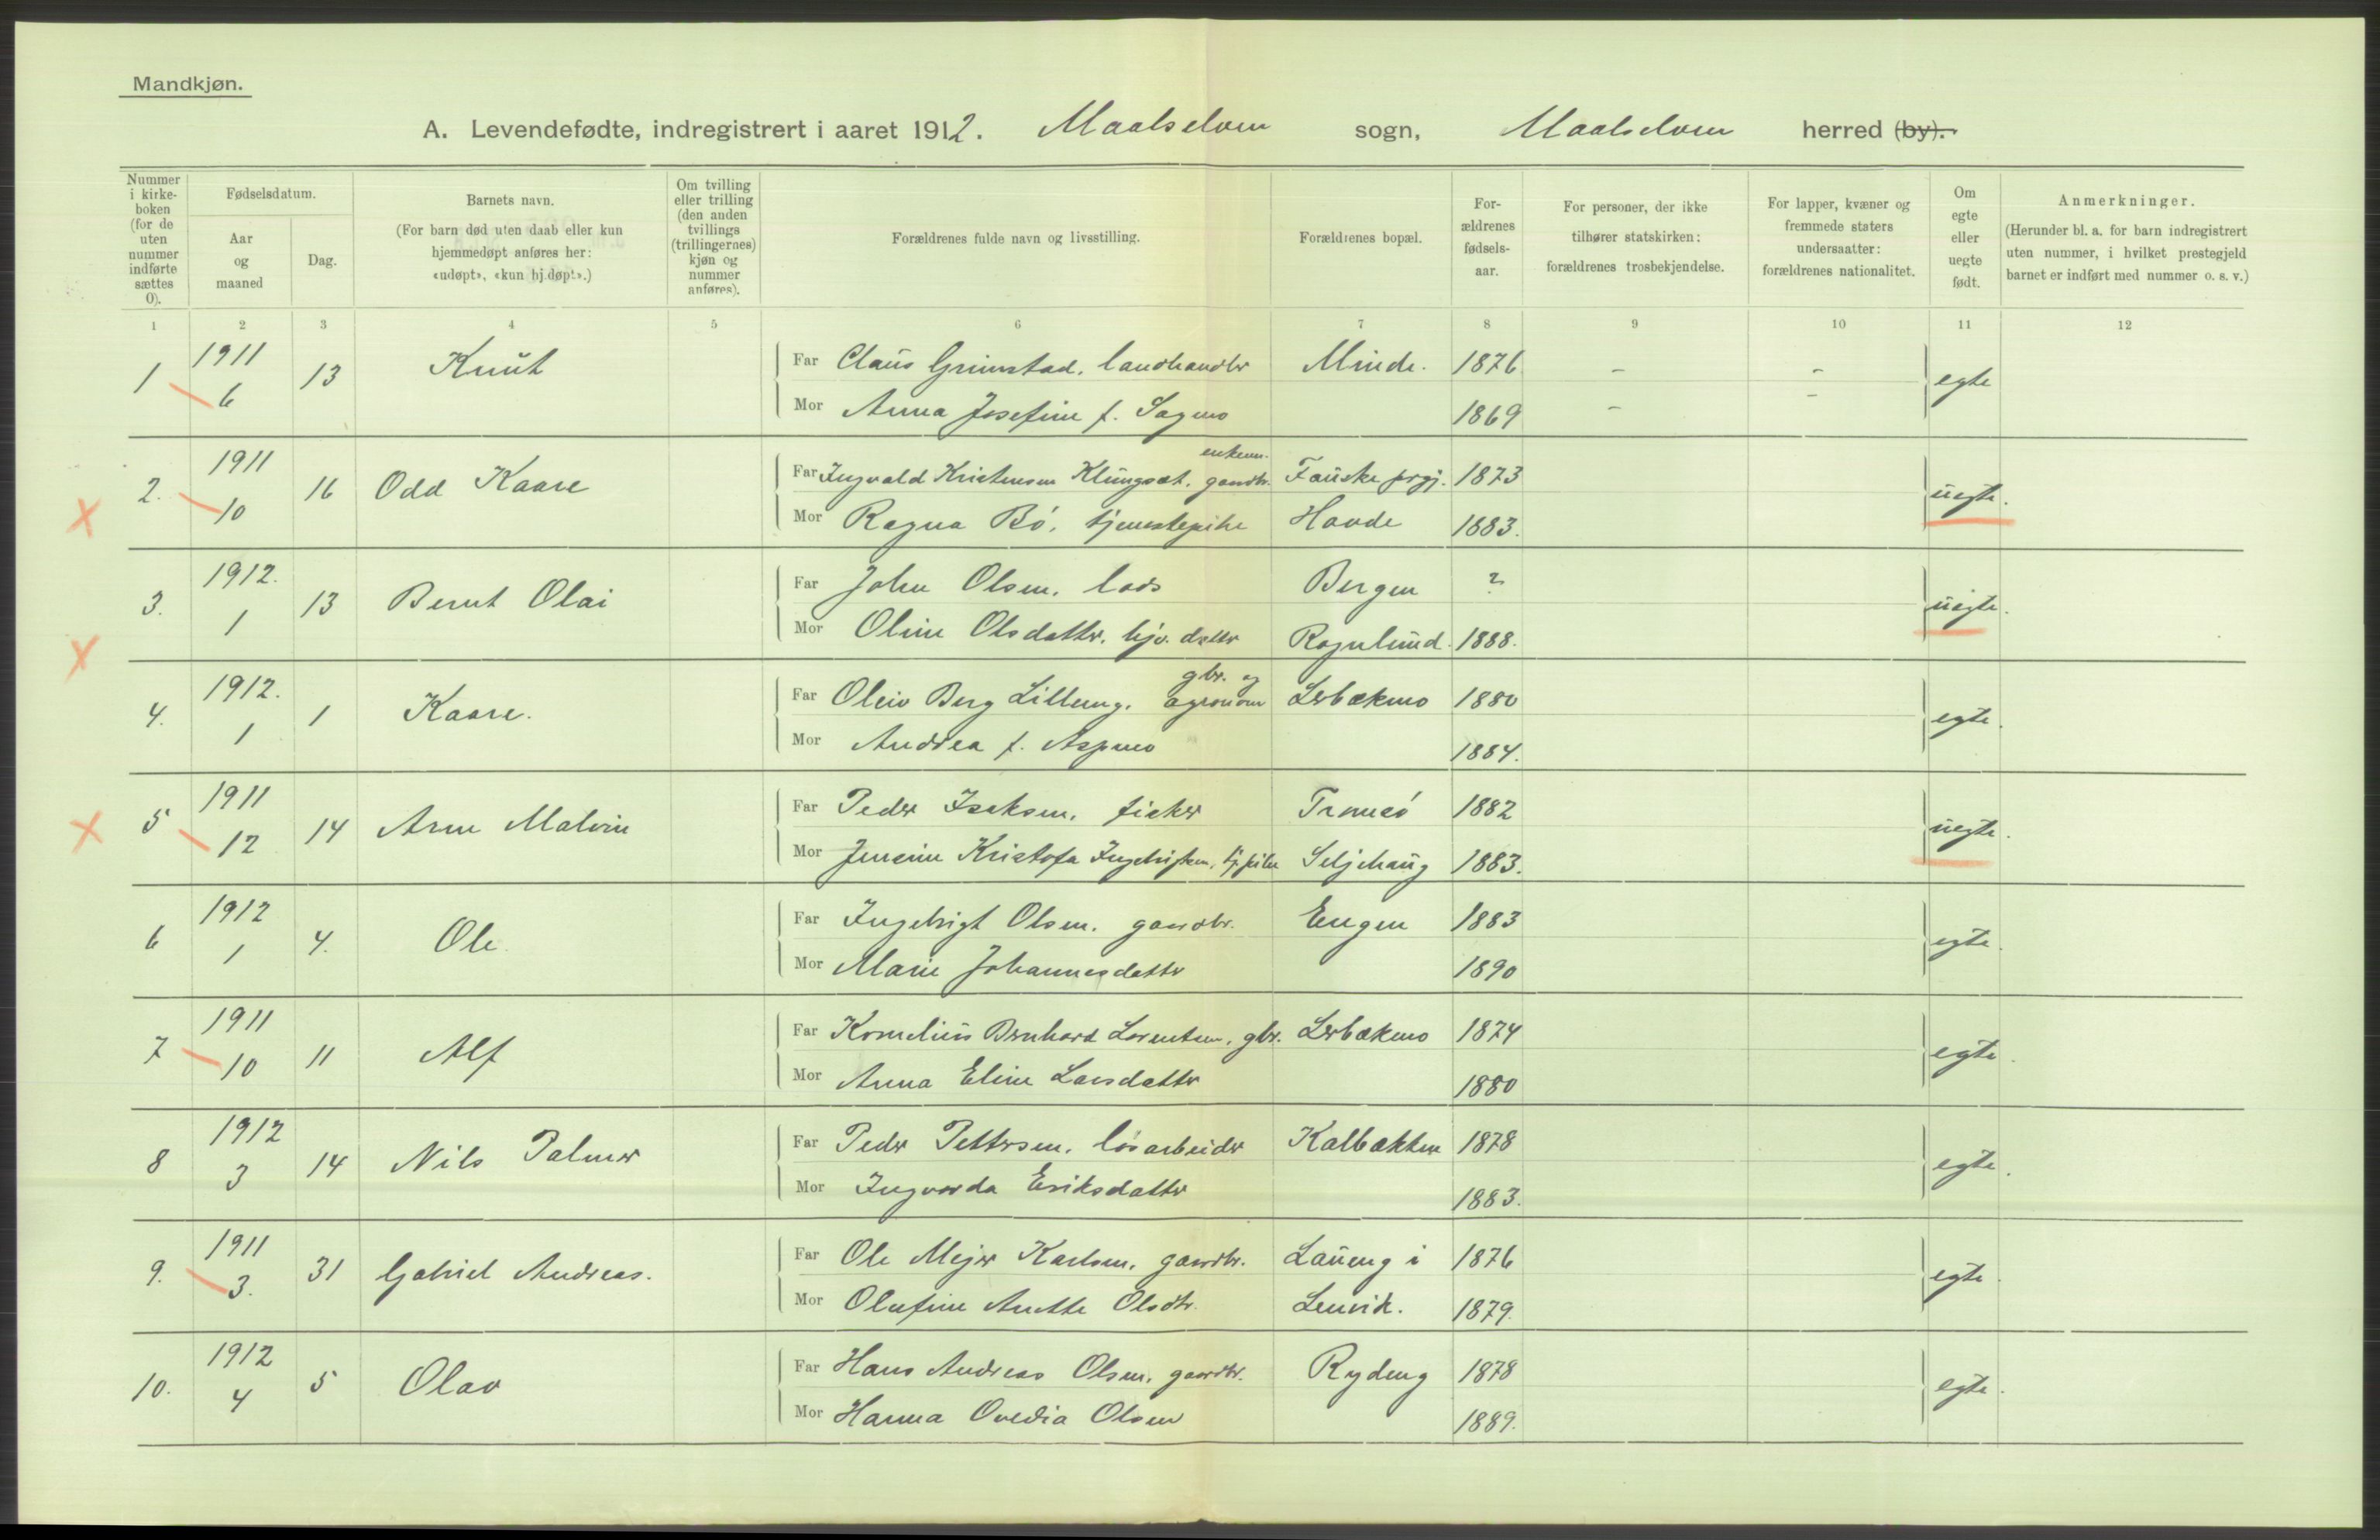 Mandkjøn.
A. Levendefødte, indregistrert i aaret 1912. Maalselven sogn, Maalselven herred (by).
Nummer i kirke-boken (for de uten nummer indførte sættes 0).
Fødselsdatum.
Aar og maaned
Dag.
Barnets navn.
(For barn død uten daab eller kun hjemmedøpt anføres her: «udøpt», «kun hj.døpt».)
Om tvilling eller trilling (den anden tvillings (trillingernes) kjøn og nummer anføres).
Forældrenes fulde navn og livsstilling.
Forældrenes bopæl.
For-ældrenes fødsels-aar.
For personer, der ikke tilhører statskirken: forældrenes trosbekjendelse.
For lapper, kvæner og fremmede staters undersaatter: forældrenes nationalitet.
Om egte eller uegte født.
Anmerkninger.
(Herunder bl. a. for barn indregistrert uten nummer, i hvilket prestegjeld barnet er indført med nummer o. s. v.)
1 2 3 4 5 6 7 8 9 10 11 12
1 1911 6 13 Knut Far Claus Grimstad, landhandler Minde. 1876 - - egte
Mor Anna Josefine f. Sagmo 1869 - -
2. 1911 10 16 Odd Kaare Far Ingvald Kristensen Klungset, gaardbr. enkem. Fauske prgj. 1873 uegte.
Mor Ragna Bö, tjenestepike Havde 1883.
3. 1912. 1 13 Bernt Olai Far John Olsen, lods Bergen ? uegte.
Mor Oline Olsdatter, hjv. datter Rognlund. 1888.
4. 1912. 1 1 Kaare. Far Oleiv Berg Lilleeng, gbr. og agronom Lerbækmo 1880 egte.
Mor Andrea f. Aspmo 1884.
5 1911 12 14 Arne Malvin Far Peder Isaksen, fisker Tromsö 1882 uegte.
Mor Jensine Kristofa Ingebrigtsen, tj.pike Seljehaug 1883.
6 1912 1 4. Ole Far Ingebrigt Olsen, gaardbr. Engen 1883 egte.
Mor Marie Johannesdatter 1890
7 1911 10 11 Alf Far Kornelius Bernhard Lorentsen, gbr. Lerbækmo 1874 egte.
Mor Anna Eline Larsdatter 1880
8 1912 3 14 Nils Palmer Far Peder Pettersen, lösarbeider Kalbakken 1878 egte.
Mor Ingvarda Eriksdatter 1883.
9. 1911 3. 31 Gabriel Andreas. Far Ole Mejer Karlsen, gaardbr. Laueng i 1876 egte.
Mor Olufine Anette Olsdtr. Lenvik. 1879.
10. 1912 4 5 Olav Far Hans Andreas Olsen, gaardbr. Rydeng 1878 egte.
Mor Hanna Ovedia Olsen 1889.